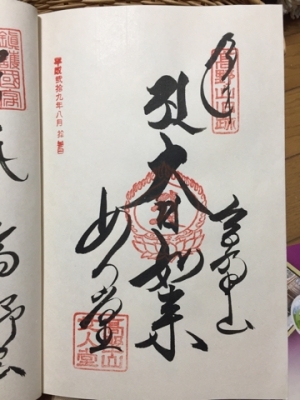 奉拝
高野山
大日如来
女人堂
高野山女人堂
平成弐拾九年八月
鎮護国家
高野山